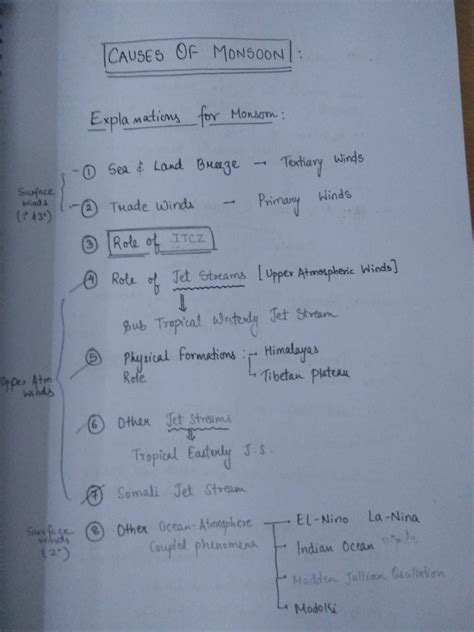 CAUSES OF MONSOON :
Explanations for Monsoon :
Surface winds (1° & 3°)
① Sea & Land Breeze → Tertiary Winds
② Trade Winds → Primary Winds
③ Role of ITCZ
④ Role of Jet Streams [Upper Atmospheric Winds]
⇓
Sub Tropical Westerly Jet Stream
Upper Atm winds
⑤ Physical Formations : → Himalayas
Role → Tibetan Plateau
⑥ Other Jet Streams
⇓
Tropical Easterly J.S.
⑦ Somali Jet Stream
Surface winds (2°)
⑧ Other Ocean-Atmosphere → EL-Nino La-Nina
Coupled phenomena → Indian Ocean
→ Madden Jullian Oscillation
→ Modoki